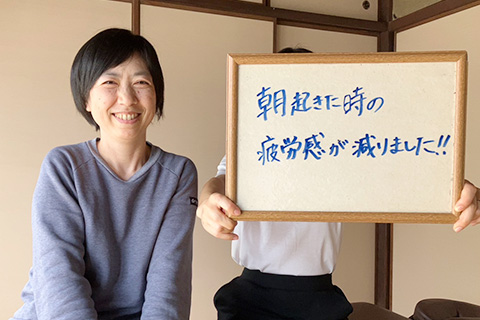 朝起きた時の
疲労感が減りました!!